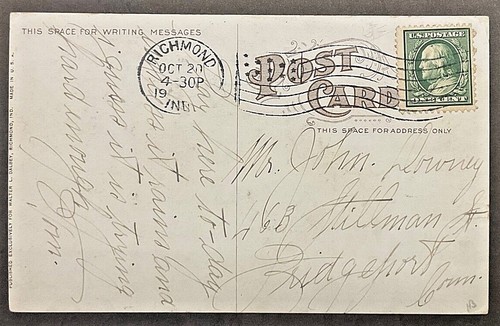 THIS SPACE FOR WRITING MESSAGES
MADE IN U.S.A.
PUBLISHED EXCLUSIVELY FOR WALTER L. DALBEY, RICHMOND, IND.
RICHMOND
OCT 20
4-30P
19
IND.
POST
CARD
U.S. POSTAGE
ONE CENT
THIS SPACE FOR ADDRESS ONLY
here to-day
it rains and
I guess it is trying
hard enough
Tom.
Mr. John. Downey
463 Stillman St.
Bridgeport
Conn.